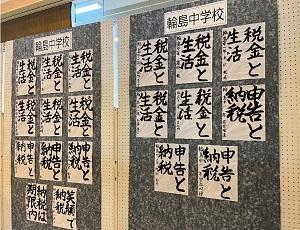 輪島中学校
税金と
生活
税金と
生活
税金と
生活
税金と
生活
税金と
生活
税金と
生活
申告と
納税
申告と
納税
申告と
納税
笑顔で
納税
納税は
期限内
輪島中学校
税金と
生活
税金と
生活
税金と
生活
申告と
納税
税金と
生活
税金と
生活
申告と
納税
申告と
納税